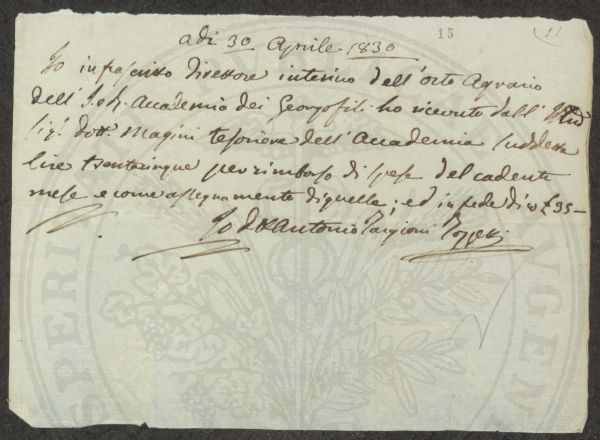 15
adi 30 Aprile 1830
Io infrascritto Direttore interino dell'orto Agrario
dell'I. e R. Accademia dei Georgofili ho ricevuto dall'
Sig.r Dott.r Magini tesoriere dell'Accademia suddetta
lire trentacinque per rimborso di spese del cadente
mese e come assegnamento di quelle; ed in fede dico £ 35 –
Io D. Antonio Targioni Tozzetti